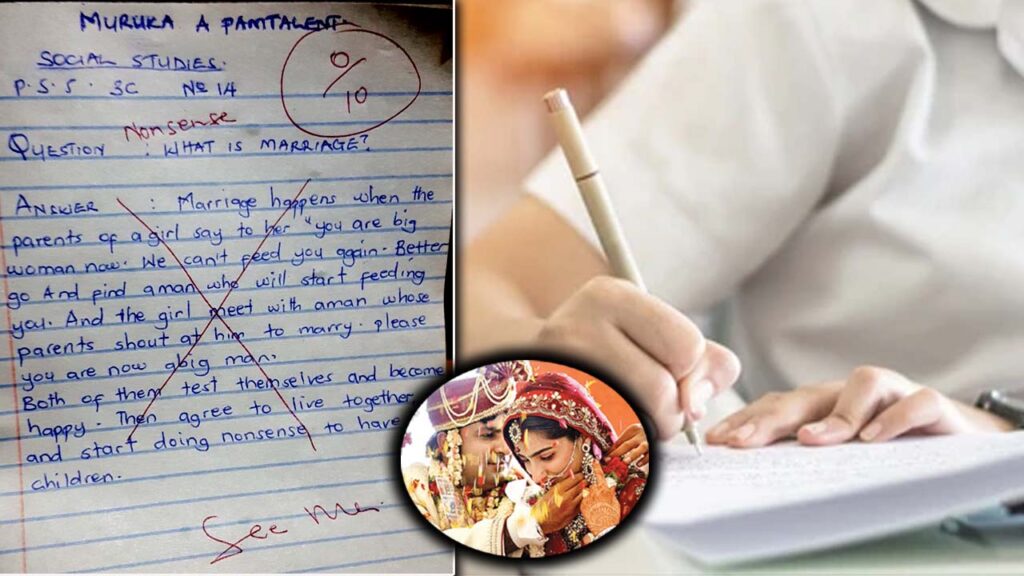 MURUKA A PAMTALENT
SOCIAL STUDIES.
P.S.S. 3C No 14
0/10
Nonsense
QUESTION : WHAT IS MARRIAGE?
ANSWER : Marriage happens when the
parents of a girl say to her "you are big
woman now. We can't feed you again. Better
go And find aman who will start feeding
you. And the girl meet with aman whose
parents shout at him to marry. please
you are now abig man.
Both of them test themselves and become
happy. Then agree to live together
and start doing nonsense to have
children.
See Me.